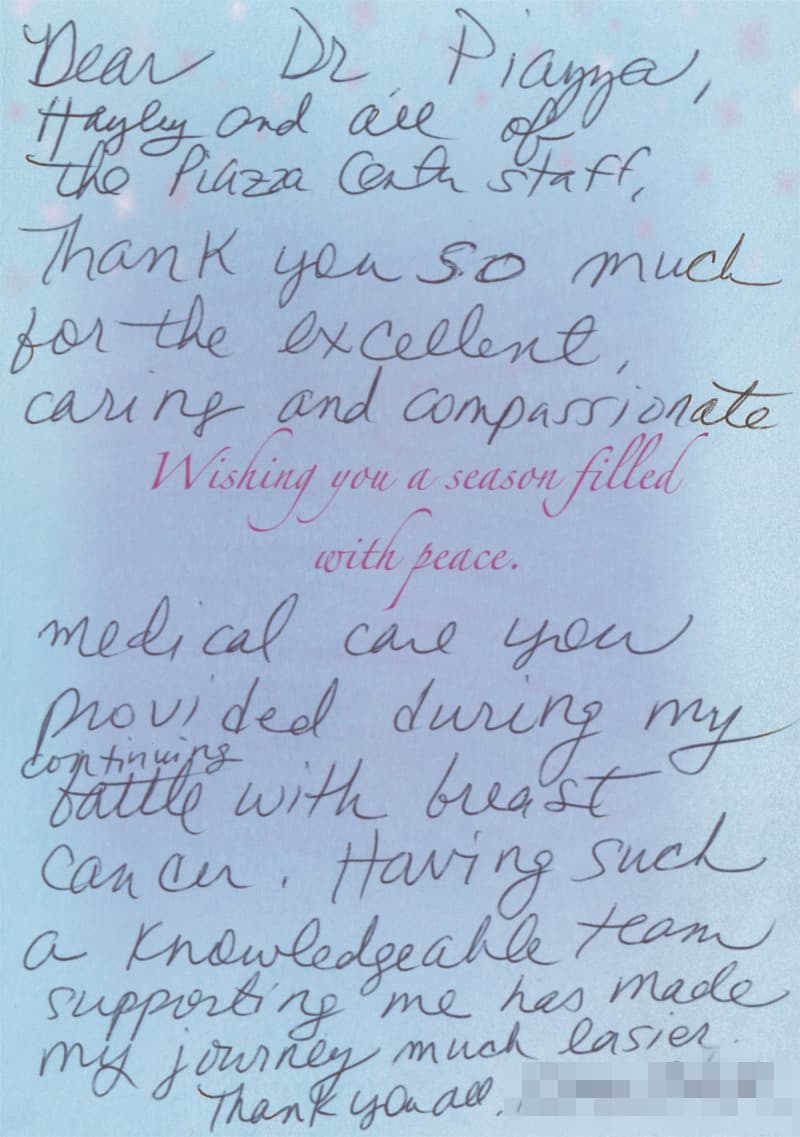 Dear Dr. Piazza,
Hayley and all of
the Piazza Center staff,
Thank you so much
for the excellent,
caring and compassionate
Wishing you a season filled
with peace.
medical care you
provided during my
continuing
battle with breast
cancer. Having such
a knowledgeable team
supporting me has made
my journey much easier.
Thank you all.